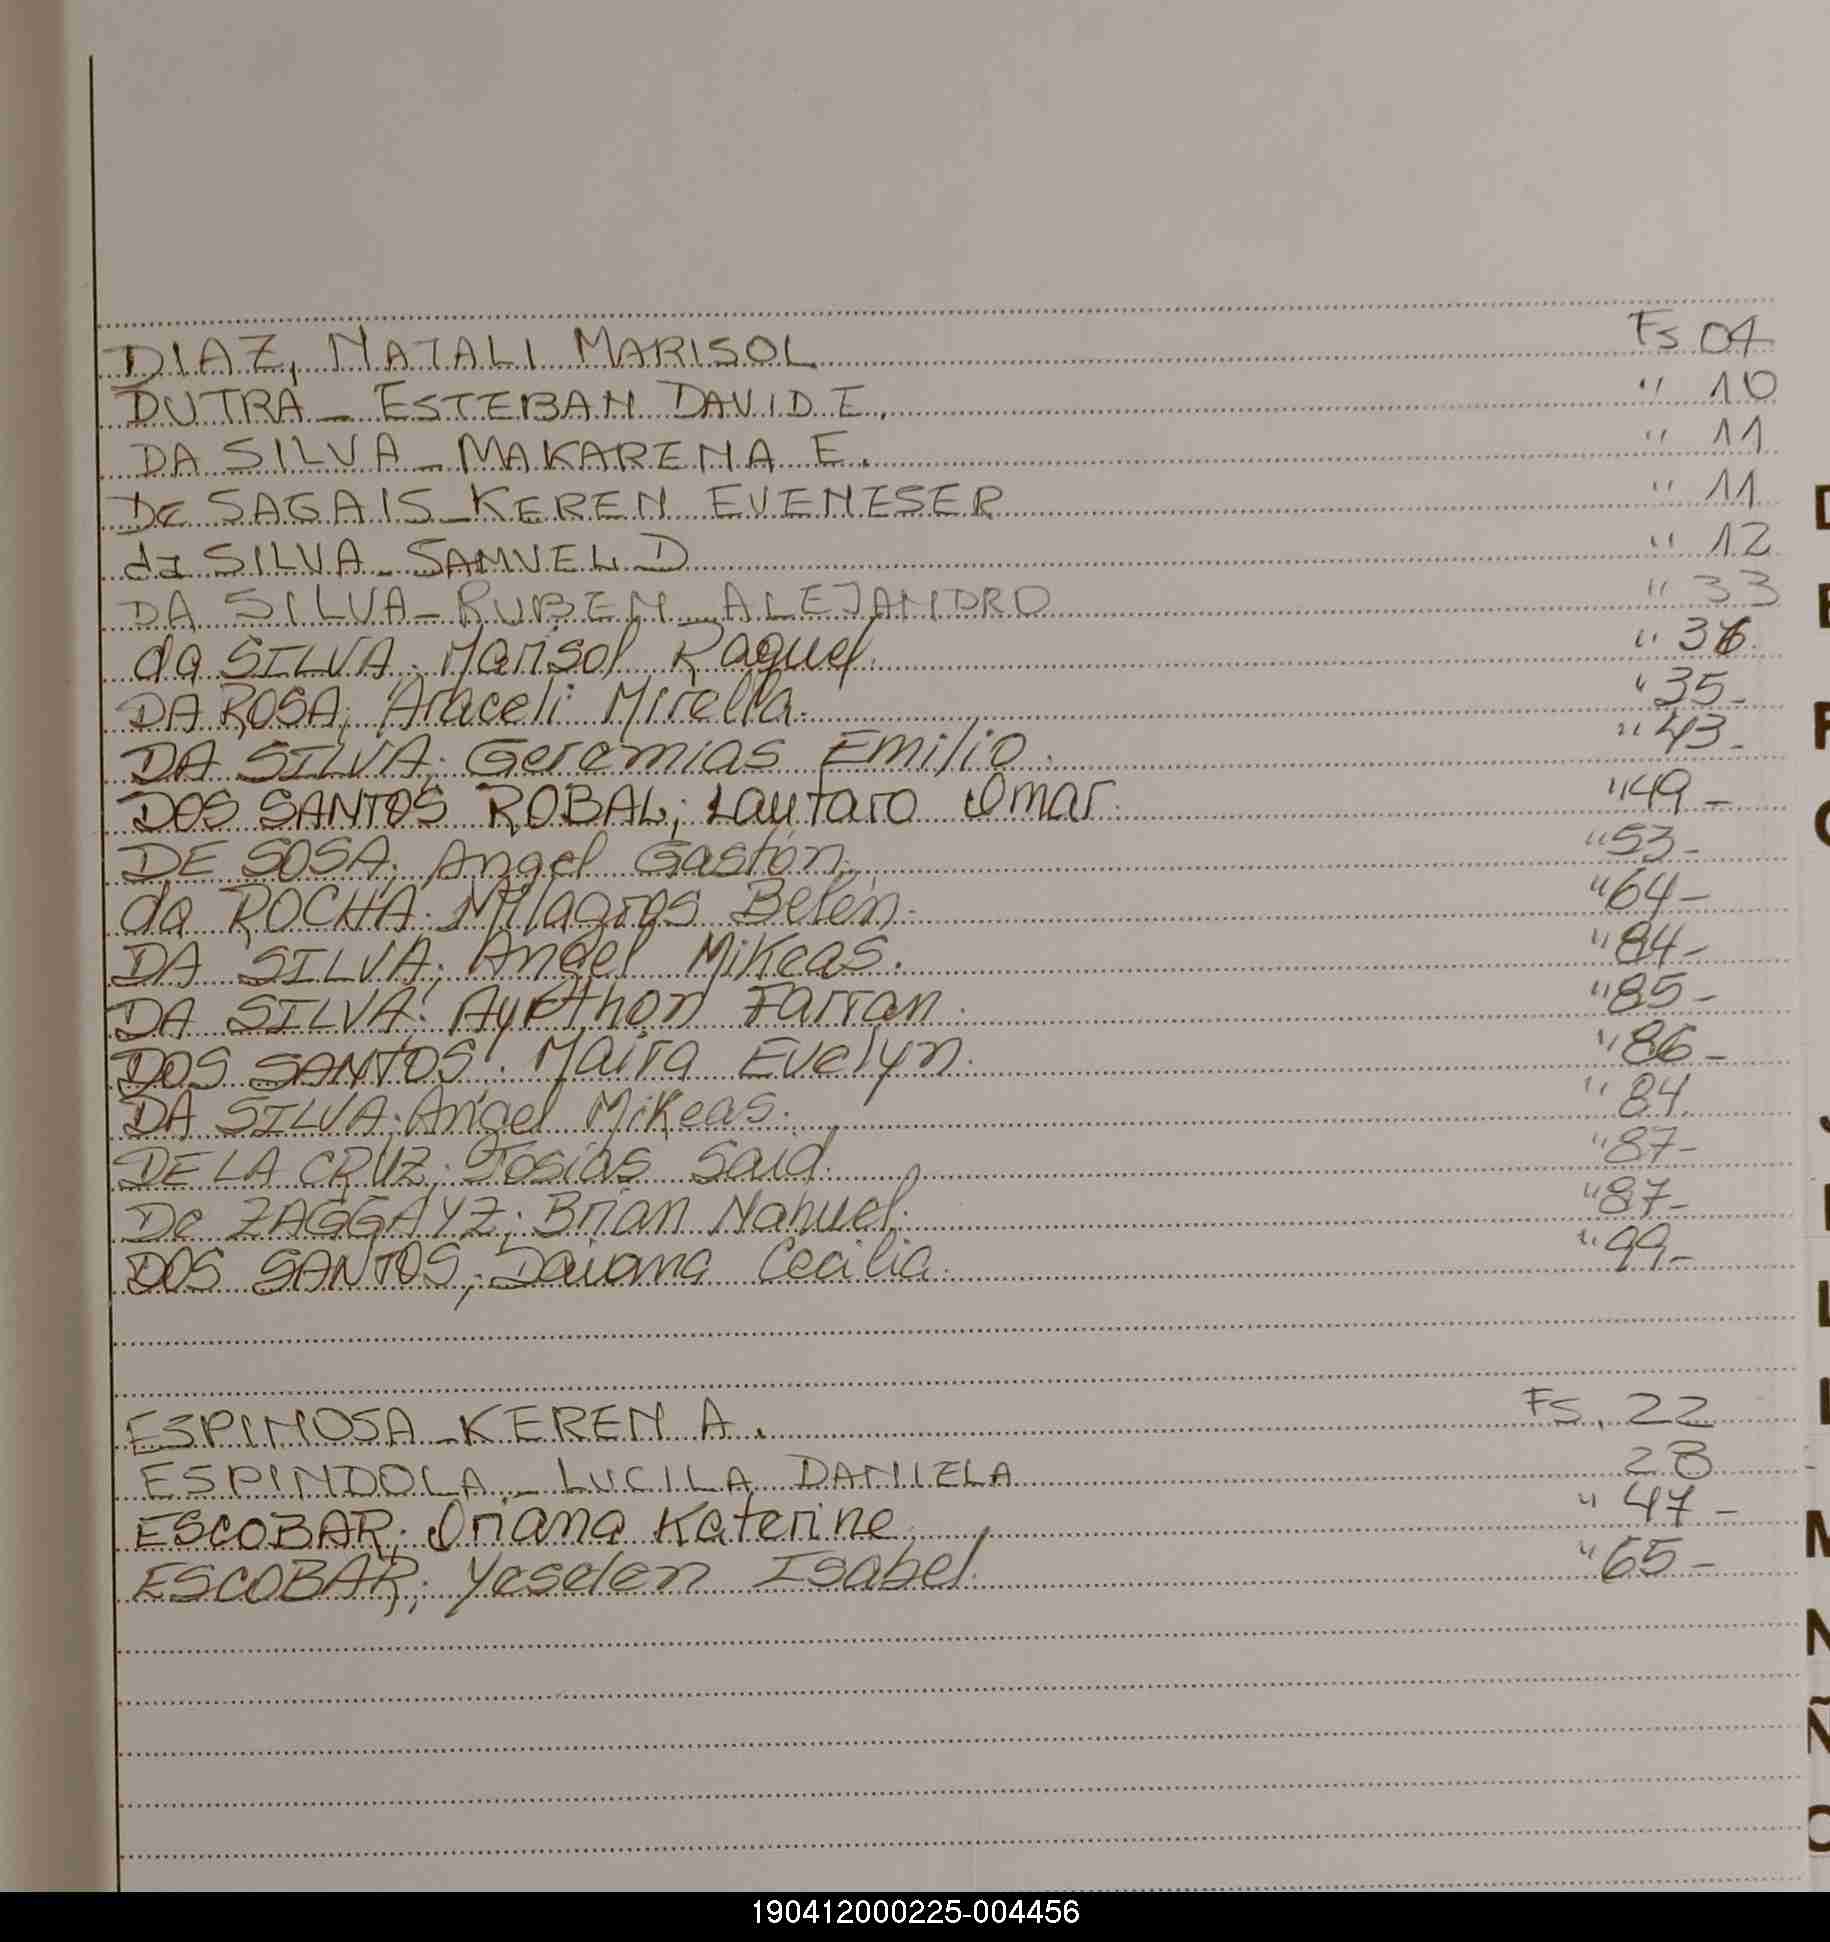 DIAZ, NATALI MARISOL Fs 04
DUTRA - ESTEBAN DAVID E. " 10
DA SILVA - MAKARENA E. " 11
De SAGAIS - KEREN EVENESER " 11
da SILVA - SAMUEL D " 12
DA SILVA - RUBEN ALEJANDRO " 33
da SILVA; Marisol Raquel. "
DA ROSA; Araceli Mirella. " 35-
DA SILVA; Geremias Emilio. " 43-
DOS SANTOS ROBAL; Lautaro Omar. " 49-
DE SOSA; Angel Gastón. " 53-
da ROCHA; Milagros Belén. " 64-
DA SILVA; Angel Mikeas. " 84-
DA SILVA; Farran. " 85-
DOS SANTOS; Maira Evelyn. " 86-
DA SILVA; Angel Mikeas. " 84
DE LA CRUZ; Josias Said. " 87-
De ZAGGAYZ; Brian Nahuel. " 87-
DOS SANTOS; Daiana Cecilia. " 99-
ESPINOSA - KEREN A. Fs. 22
ESPINDOLA - LUCILA DANIELA 28
ESCOBAR; Oriana Katerine. " 47-
ESCOBAR; Yeselen Isabel. " 65-
D
E
F
G
J
K
L
L
M
N
Ñ
O
190412000225-004456